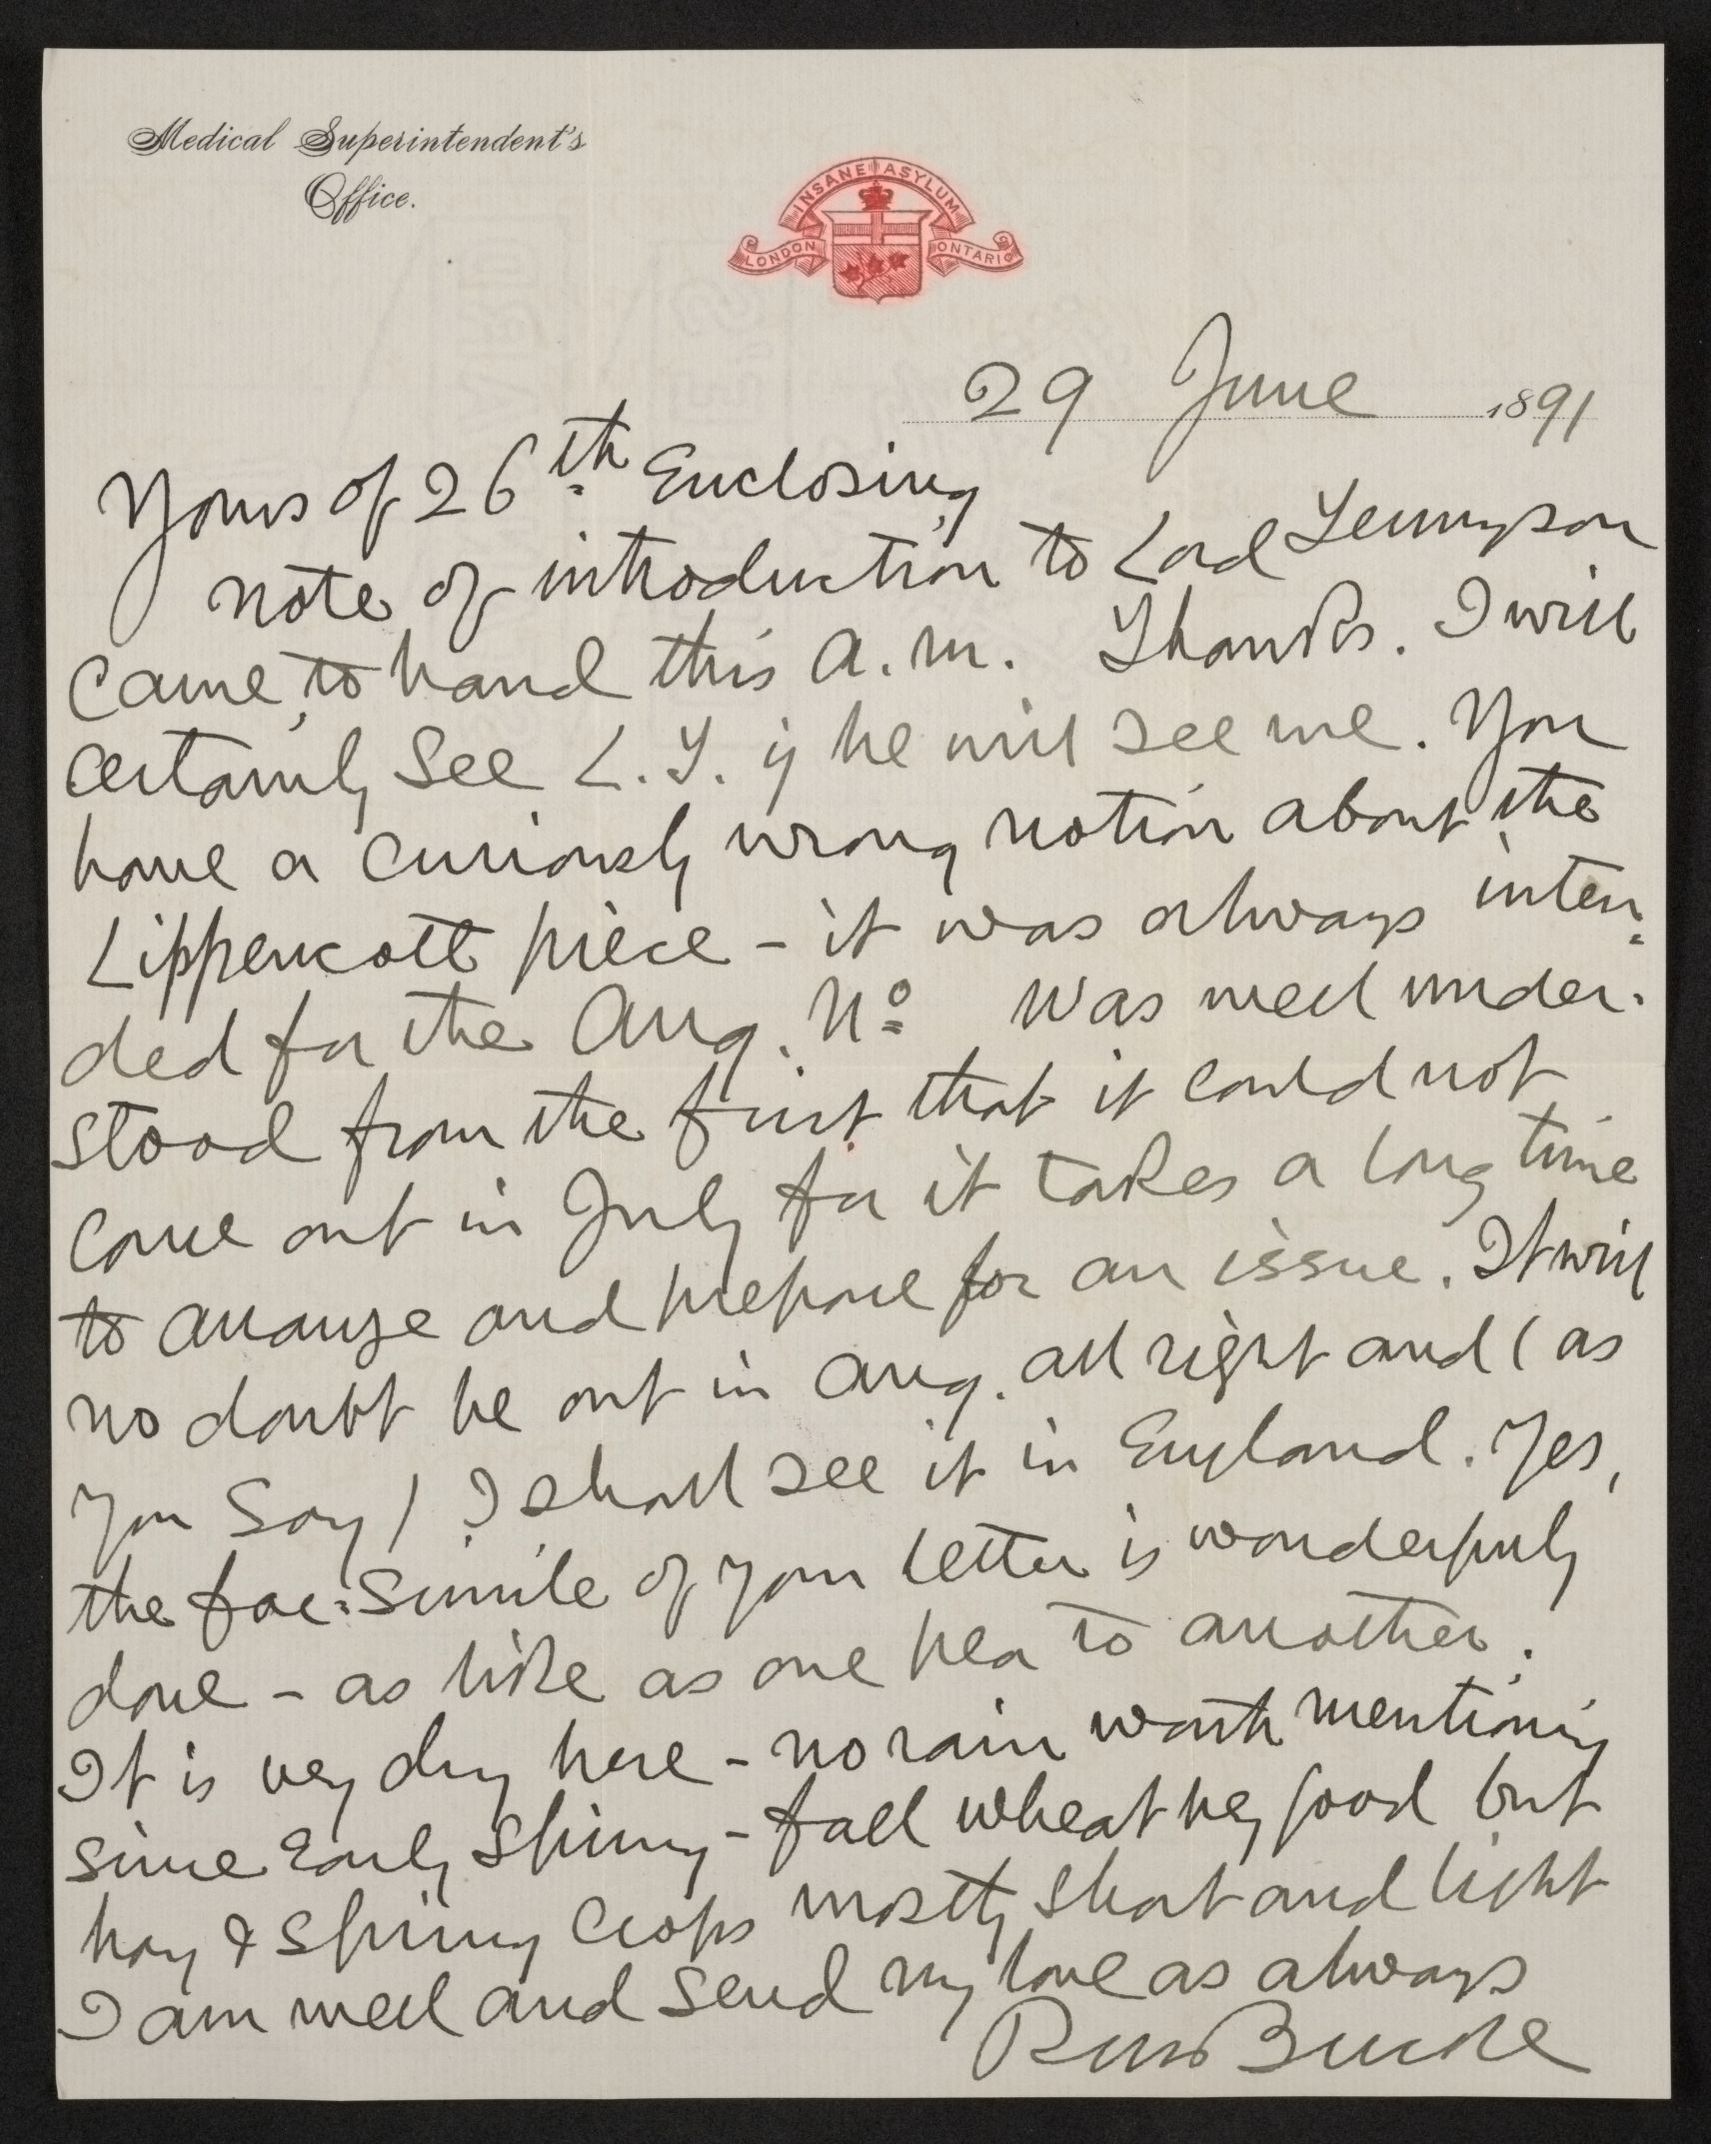 Medical Superintendent's
Office.
INSANE ASYLUM
LONDON ONTARIO
29 June 1891
Yours of 26th Enclosing
note of introduction to Lord Tennyson
came, to hand this a.m. Thanks. I will
certainly see L.T. if he will see me. You
have a curiously wrong notion about the
Lippencott piece - it was always inten-
ded for the Aug. No Was well under-
stood from the first that it could not
come out in July for it takes a long time
to arrange and prepare for an issue. It will
no doubt be out in Aug. all right and (as
you say) I shall see it in England. Yes,
the fac-simile of your letter is wonderfully
done - as like as one pea to another.
It is very dry here - no rain worth mentioning
since Early Spring - fall wheat very good but
hay & Spring Crops mostly short and light
I am well and send my love as always
RM Bucke